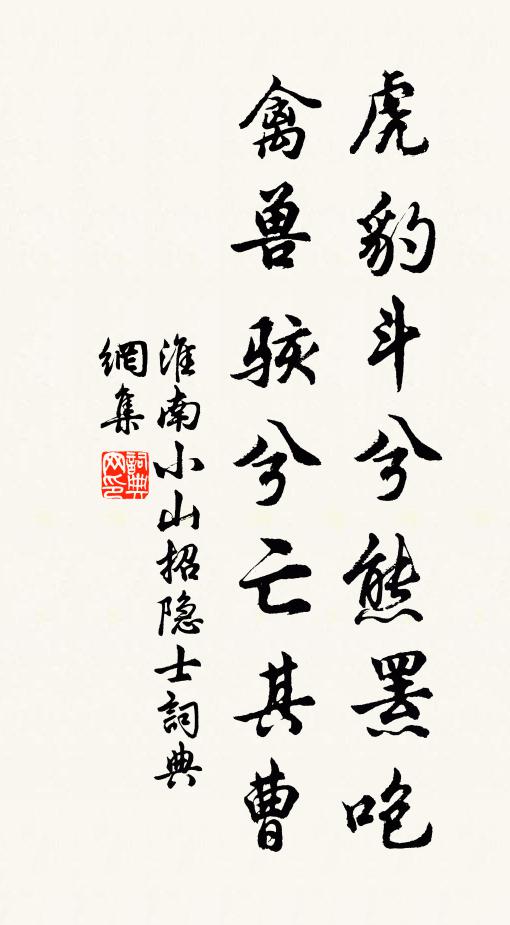 虎豹斗兮熊罴咆
禽兽骇兮亡其曹
淮南小山招隐士詞典
網集
詞典网印